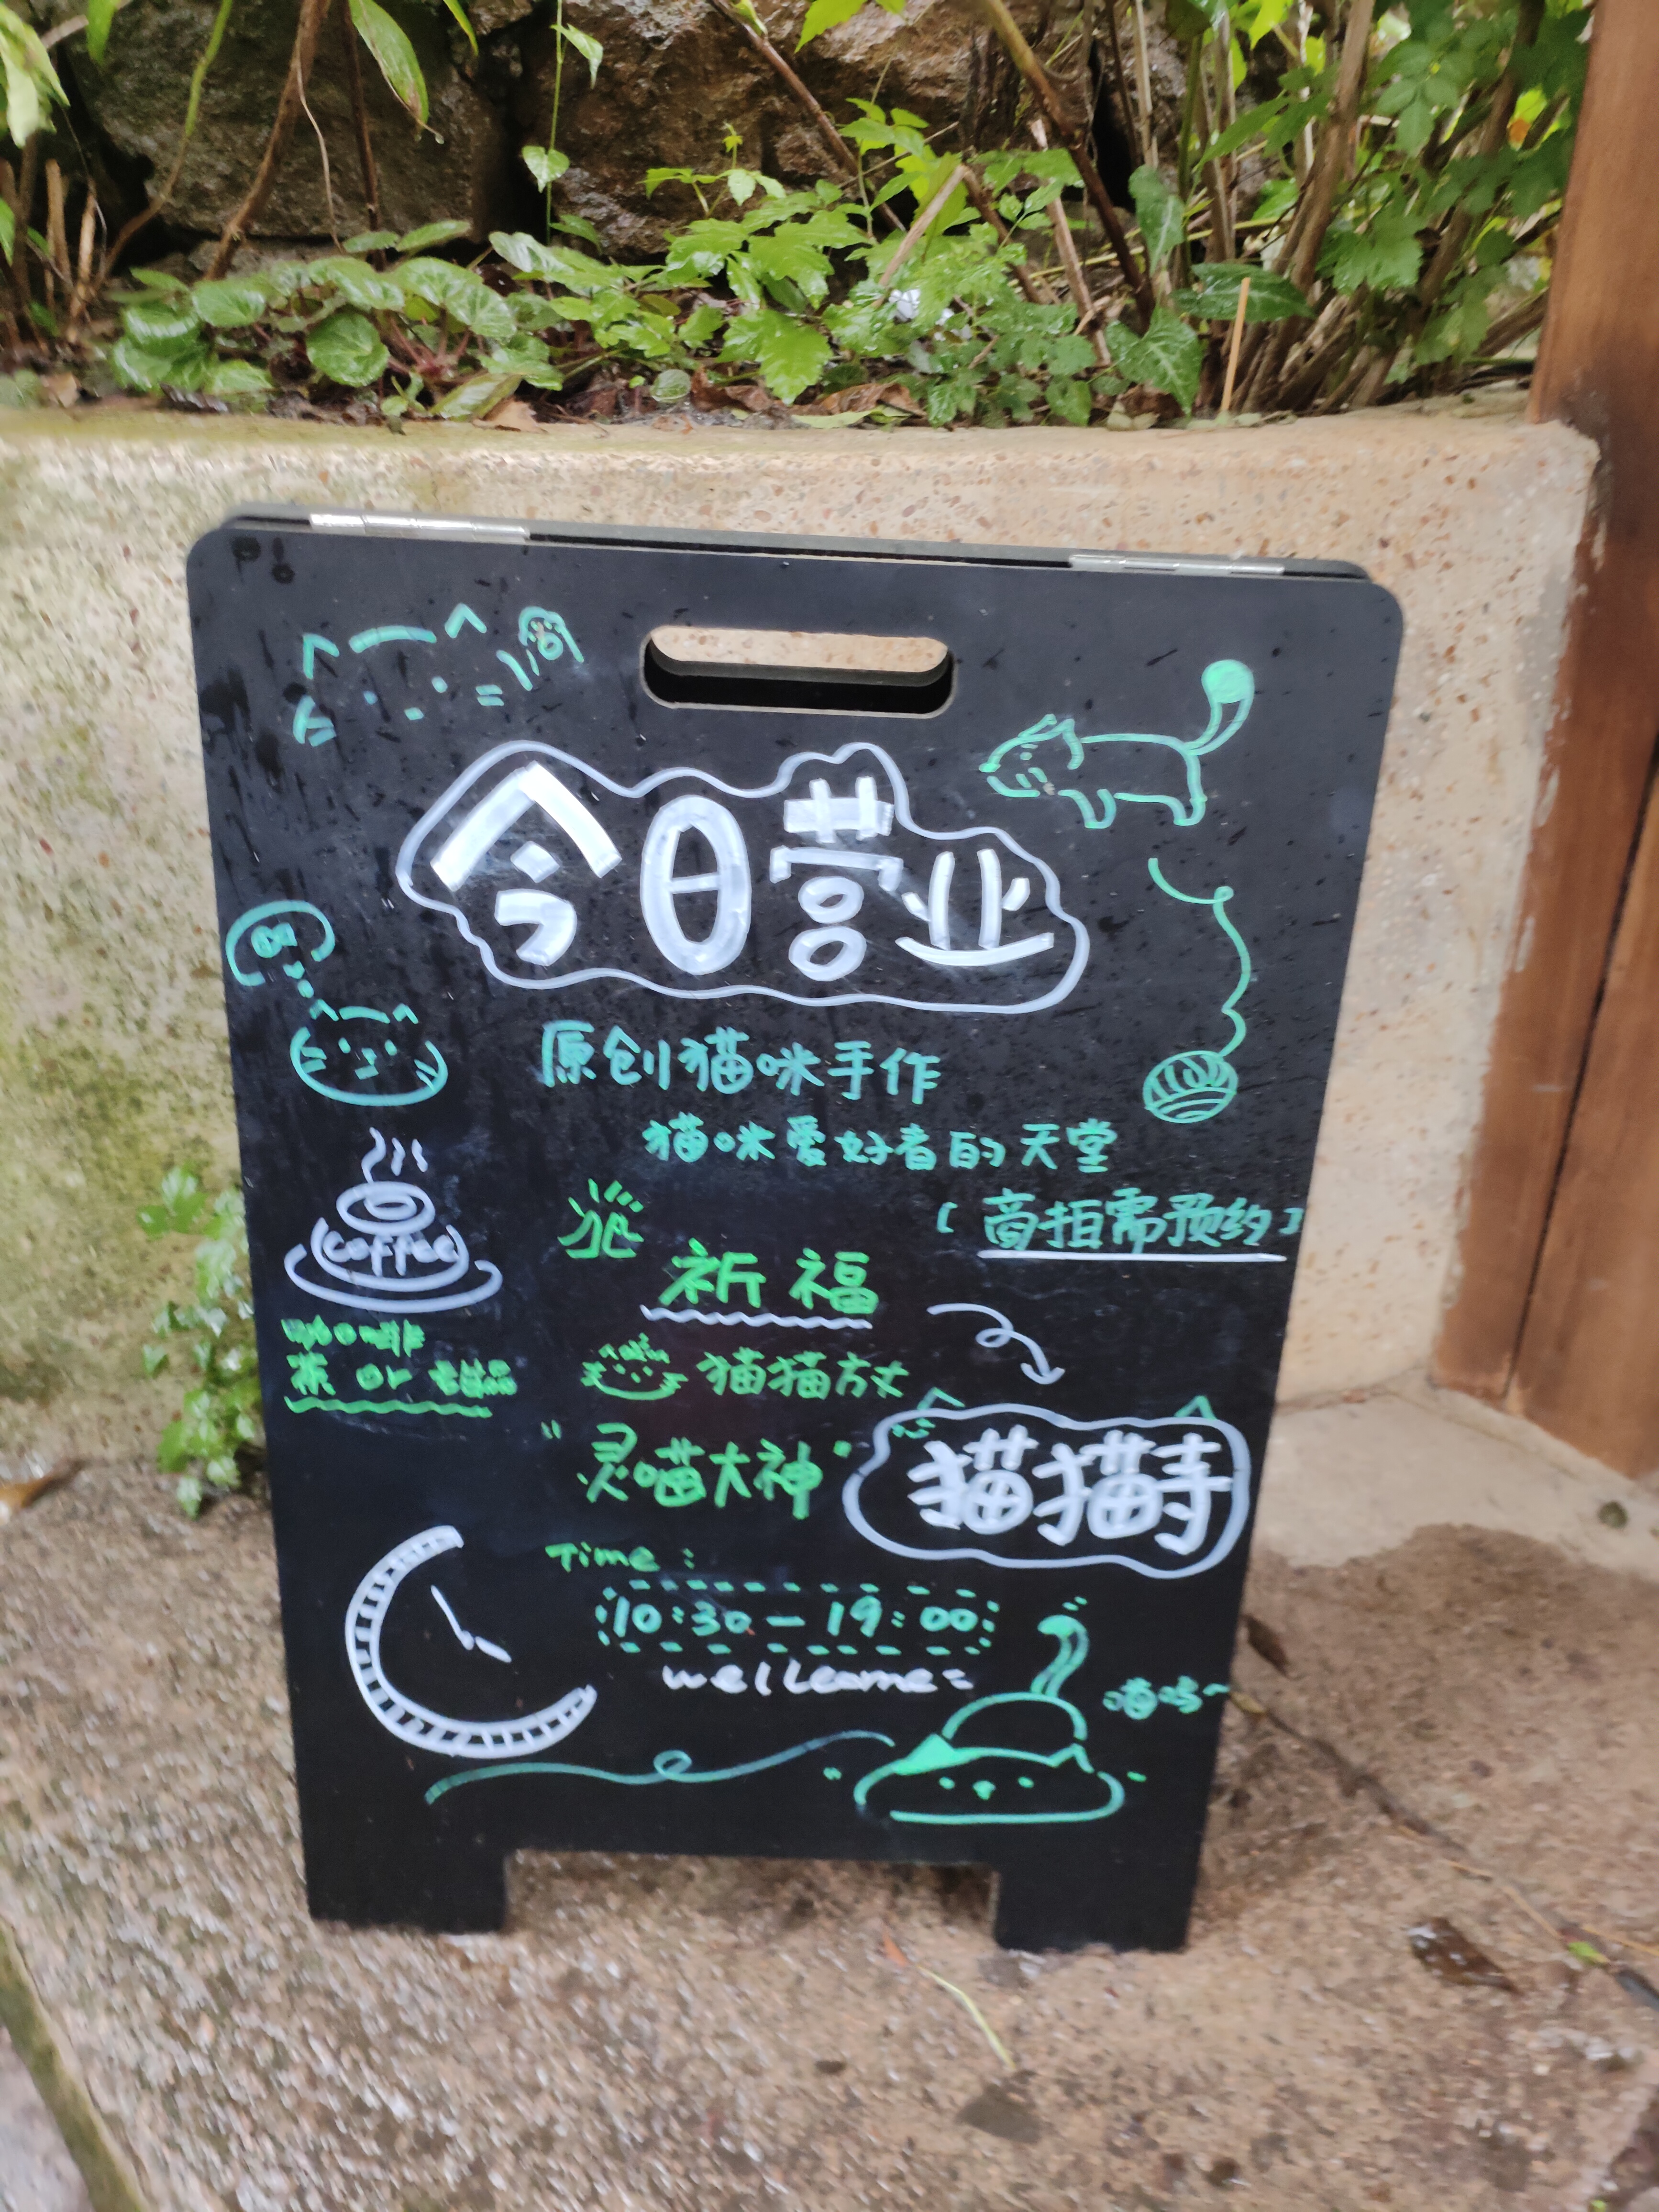 今日营业
原创猫咪手作
猫咪爱好者的天堂
(商拍需预约)
coffee
祈福
茶 or 甜品
猫猫方丈
"灵喵大神"
猫猫寺
Time:
10:30—19:00
喵呜~